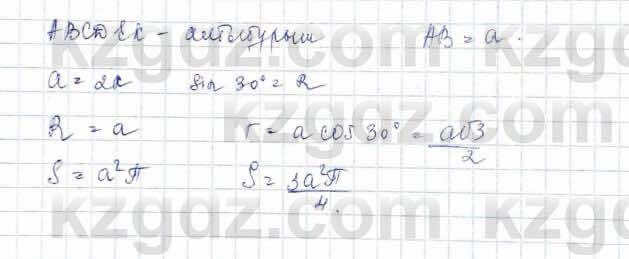 ABCDEK - алтыбұрыш AB = a.
a = 2R sin 30° = R
R = a r = a cos 30° = a√3/2
S = a²π S = 3a²π/4.
kzgdz.com kzgdz.com
kzgdz.com kzgdz.com
kzgdz.com kzgdz.com